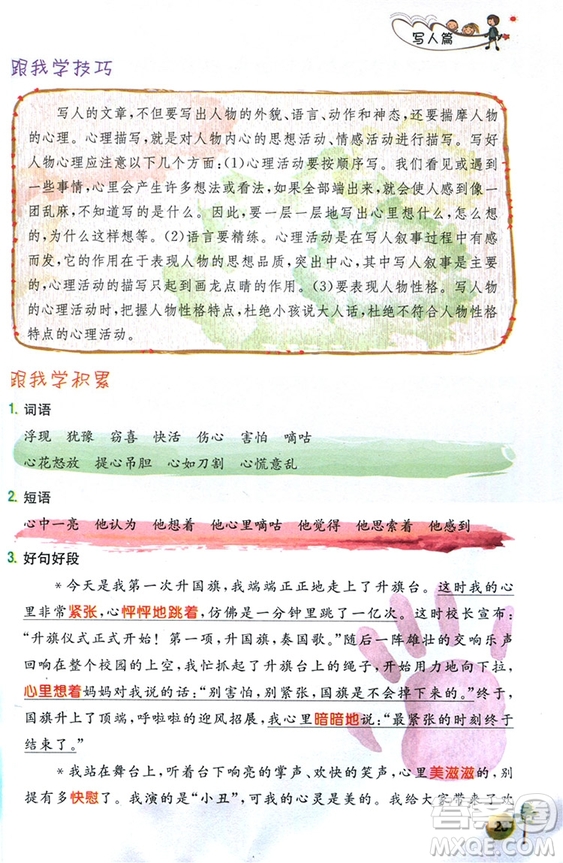 写人篇
跟我学技巧
写人的文章,不但要写出人物的外貌、语言、动作和神态,还要揣摩人物
的心理。心理描写,就是对人物内心的思想活动、情感活动进行描写。写好
人物心理应注意以下几个方面:(1)心理活动要按顺序写。我们经历或看到
一些事情,心里会产生许多想法或看法,如果全部端出来,就会让人感到像一
团乱麻,不知道写的是什么。因此,要一层一层有顺序地写出心里想什么,为
什么这样想等。(2)语言要精练。心理活动是在写人叙事过程中,有感
而发,它的作用在于表现人物的思想品质,突出中心,其篇幅不宜过长,
心理活动的描写只起到画龙点睛的作用。(3)要表现人物性格。写人物
的心理活动时,把握人物性格特点,杜绝小孩说大人话,杜绝不符合人物性格
特点的心理活动。
跟我学积累
1. 词语
浮现 犹豫 窃喜 快活 伤心 害怕 嘀咕
心花怒放 提心吊胆 心如刀割 心慌意乱
2. 短语
心中一亮 他认为 他想着 他心里嘀咕 他觉得 他思索着 他感到
3. 好句好段
*今天是我第一次升国旗,我端端正正地走上了升旗台。这时我的心
里非常紧张,心怦怦地跳着,仿佛是一分钟里跳了一亿次。这时校长宣布:
“升旗仪式正式开始!第一项,升国旗,奏国歌。”随后一阵雄壮的乐声
回荡在整个校园的上空,我慌忙抓起升旗台上的绳子,开始用力地向下拉,
心里想着妈妈对我说的话:“别害怕,别紧张,国旗是不会掉下来的。”终于,
国旗升上了顶端,呼啦啦的迎风招展,我心里暗暗地说:“最紧张的时刻终于
结束了。”
*我站在舞台上,听着台下响亮的掌声、欢快的笑声,心里美滋滋的,
更多了些快慰了。我演的是“小丑”,可我的心灵是美的。我给大家带来了欢